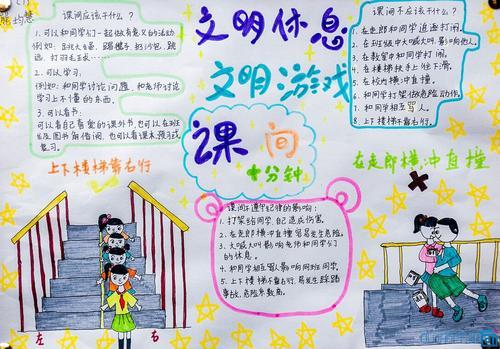 课间应该干什么？
1. 可以和同学们一起做有意义的活动
例如：跳大绳、踢毽子、扔沙包、跳
远、打羽毛球……
2. 可以学习。
例如：和同学讨论问题，和老师讨论
学习上不懂的东西。
3. 可以看书：
可以看自己喜爱的课外书，也可以在班
复习。
上下楼梯靠右行
左
右
文明休息
文明游戏
课间
十分钟
课间不遵守纪律的影响：
1. 打架给同学、自己造成伤害。
2. 在走廊横冲直撞容易发生危险。
3. 大喊大叫影响老师和同学们
的休息。
4. 和同学相互骂人影响同班同学。
5. 上下楼梯不靠右行，易发生踩踏
事故，危险系数高。
课间不应该干什么？
1. 在走廊和同学追逐打闹。
2. 在班级中大喊大叫，影响向他人。
3. 在教室中和同学打闹。
4. 在楼梯扶手上往下滑。
5. 在校内横冲直撞。
6. 和同学打架做危险动作。
7. 和同学相互骂人。
8. 上下楼梯不靠右行。
在走廊横冲直撞